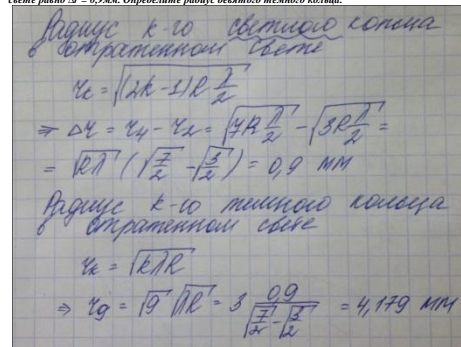 свете равно Δr = 0,9мм. Определите радиус девятого темного кольца.
Радиус к-го светлого кольца
в отраженном свете
r_k = √((2k-1)R λ/2)
⇒ Δr = r₄ - r₂ = √(7R λ/2) - √(3R λ/2) =
= √(Rλ) (√(7/2) - √(3/2)) = 0,9 мм
Радиус к-го темного кольца
в отраженном свете
r_k = √(kλR)
⇒ r₉ = √9 √(λR) = 3 0,9/(√(7/2) - √(3/2)) = 4,179 мм